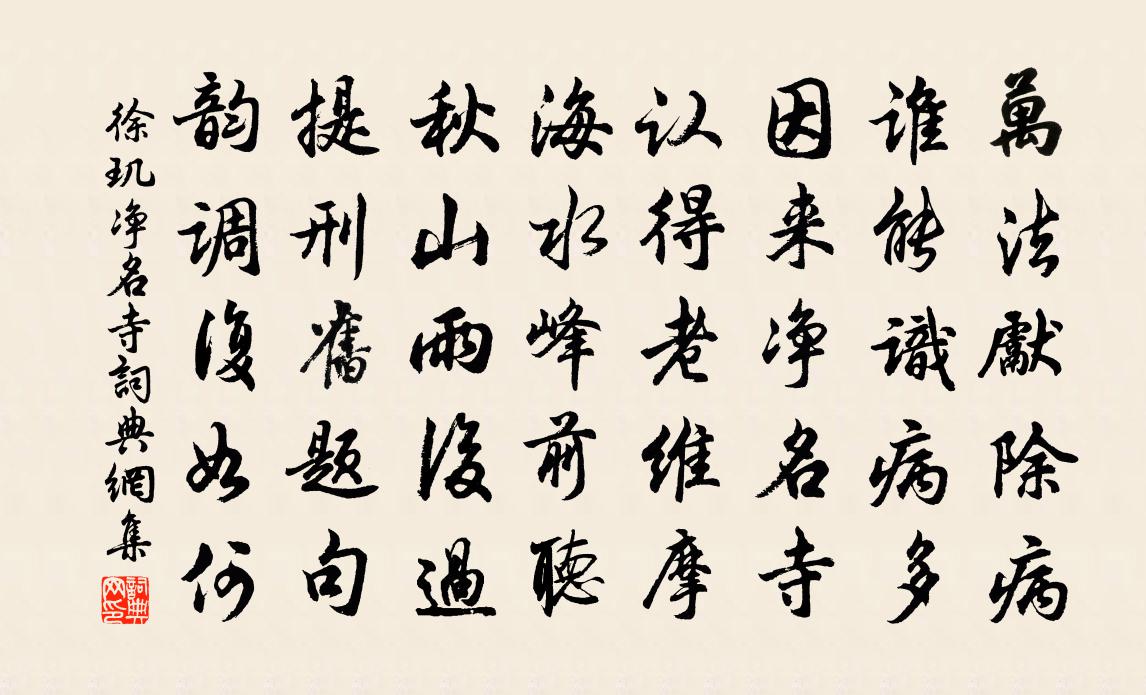 萬法獻除病
誰能識病多
因来净名寺
认得老維摩
海水峰前聽
秋山雨後過
提刑舊題句
韵調復如何
徐玑净名寺詞典網集
詞典網印